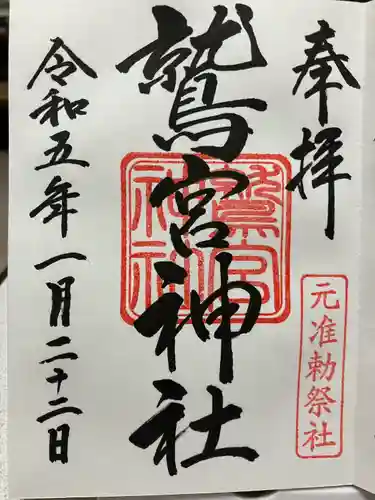 奉拝
元准勅祭社
鷲宮神社
鷲宮
神社
令和五年一月二十二日